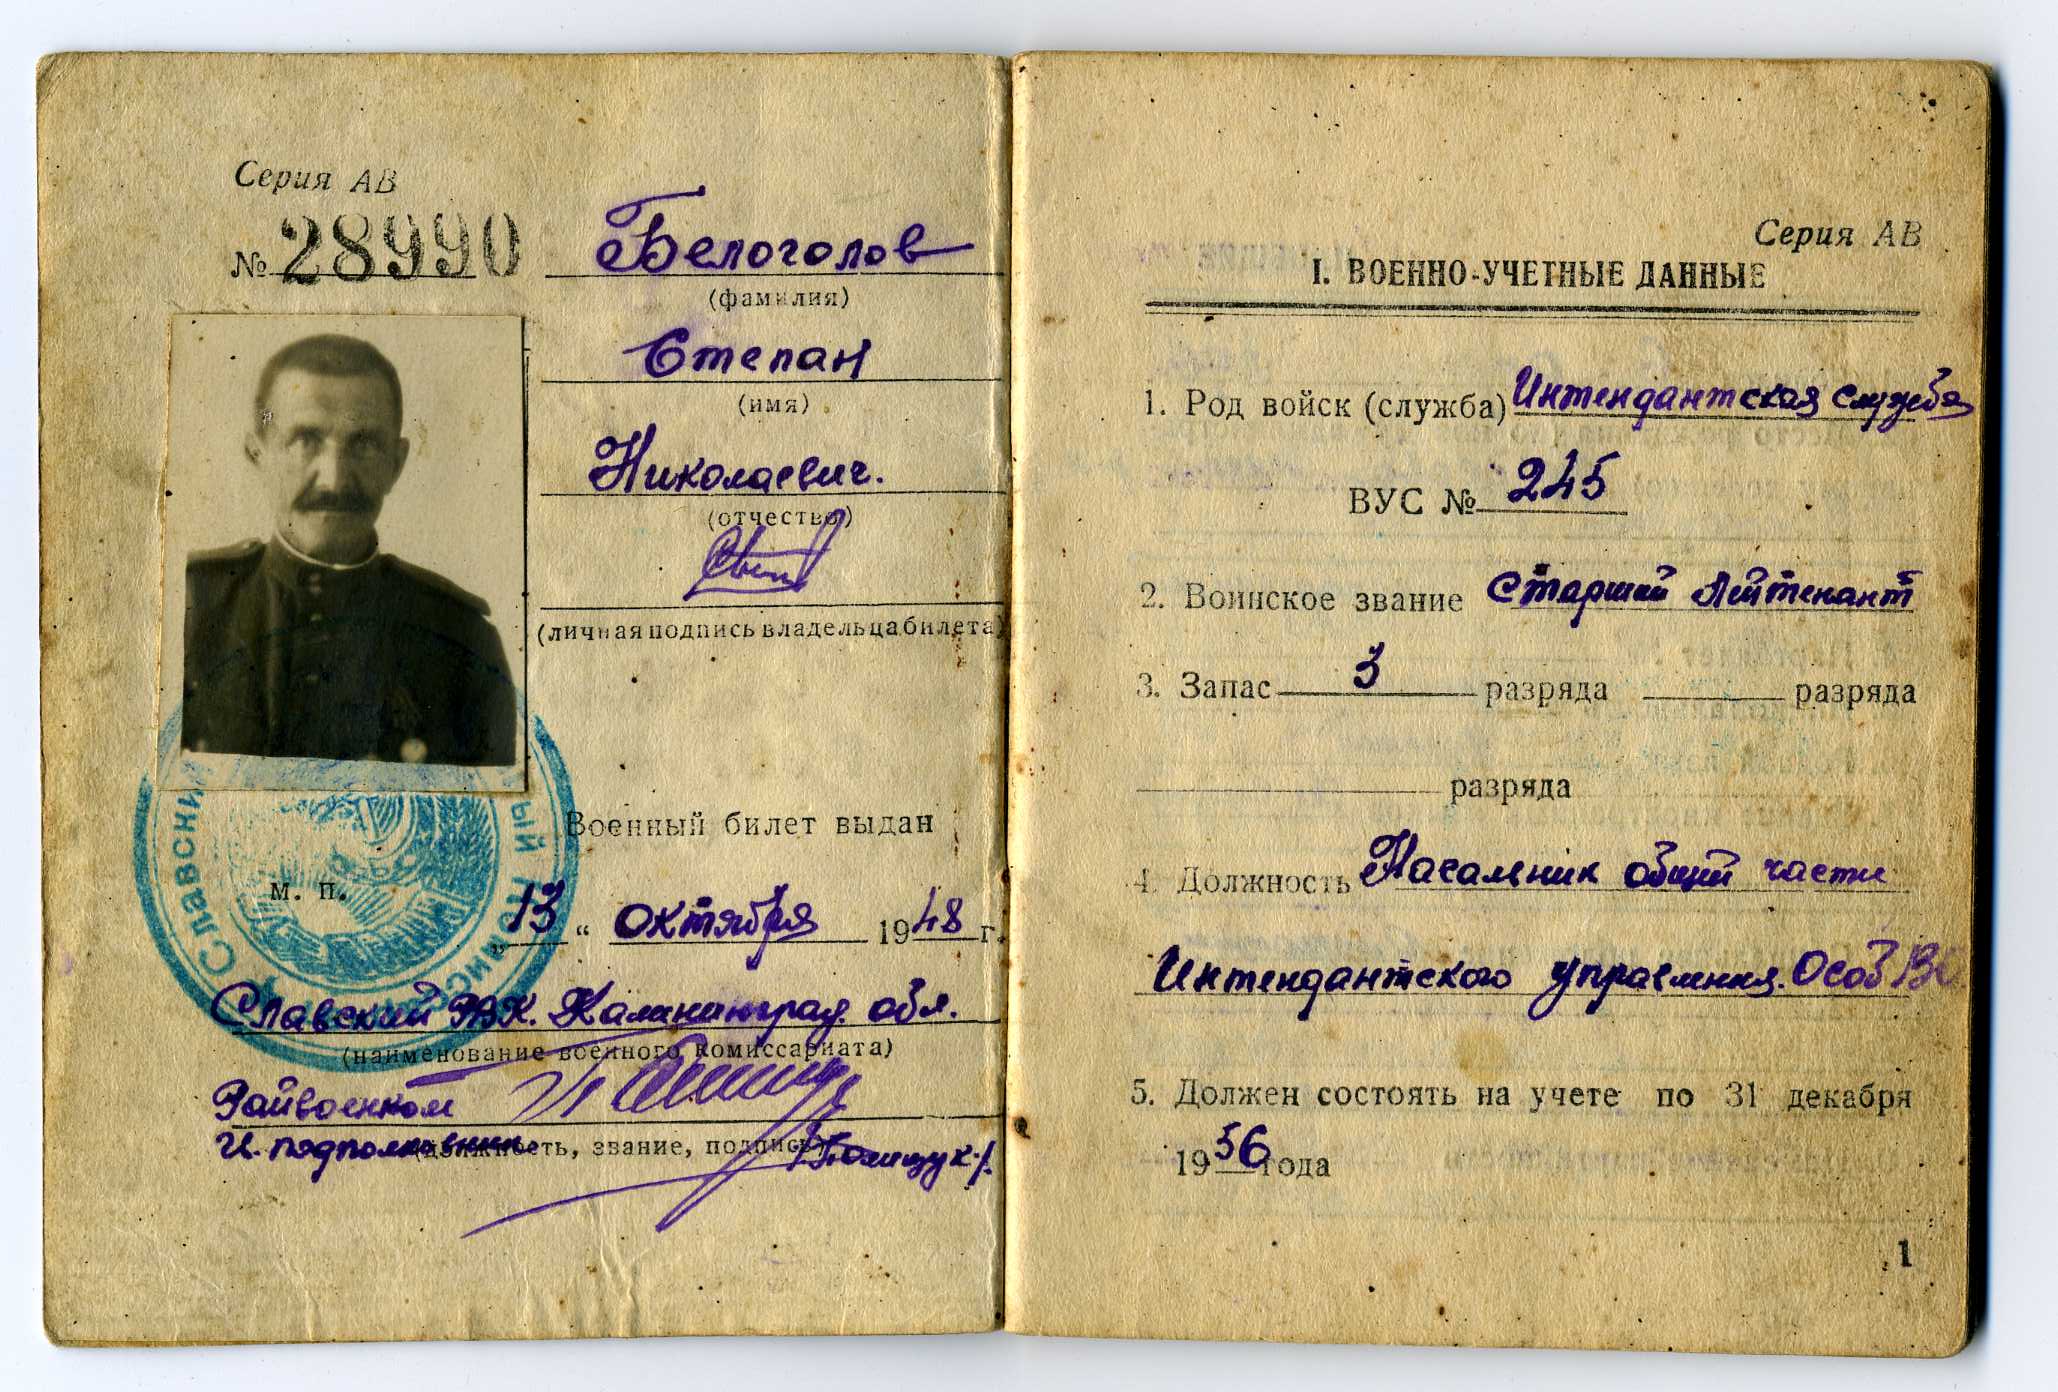 Серия АВ
№ 28990
Белоголов
(фамилия)
Степан
(имя)
Николаевич.
(отчество)
(личная подпись владельца билета)
Военный билет выдан
м. п.
„13“ октября 1948 г.
Славский РВК. Калининград. обл.
(наименование военного комиссариата)
Райвоенком
и. подполковник
(должность, звание, подпись)
Славский
Серия АВ
I. ВОЕННО-УЧЕТНЫЕ ДАННЫЕ
1. Род войск (служба) Интендантская служба
ВУС № 245
2. Воинское звание Старший лейтенант
3. Запас 3 разряда разряда
разряда
4. Должность Начальник общий части
Интендантского управления. Особ ВО
5. Должен состоять на учете по 31 декабря
1956 года
1